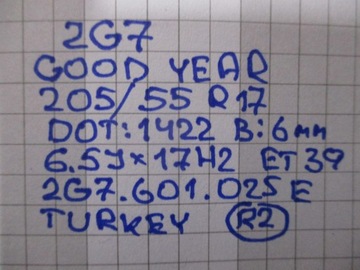 2G7
GOOD YEAR
205/55 R17
DOT:1422 B:6mm
6.5J×17H2 ET39
2G7.601.025 E
TURKEY R2